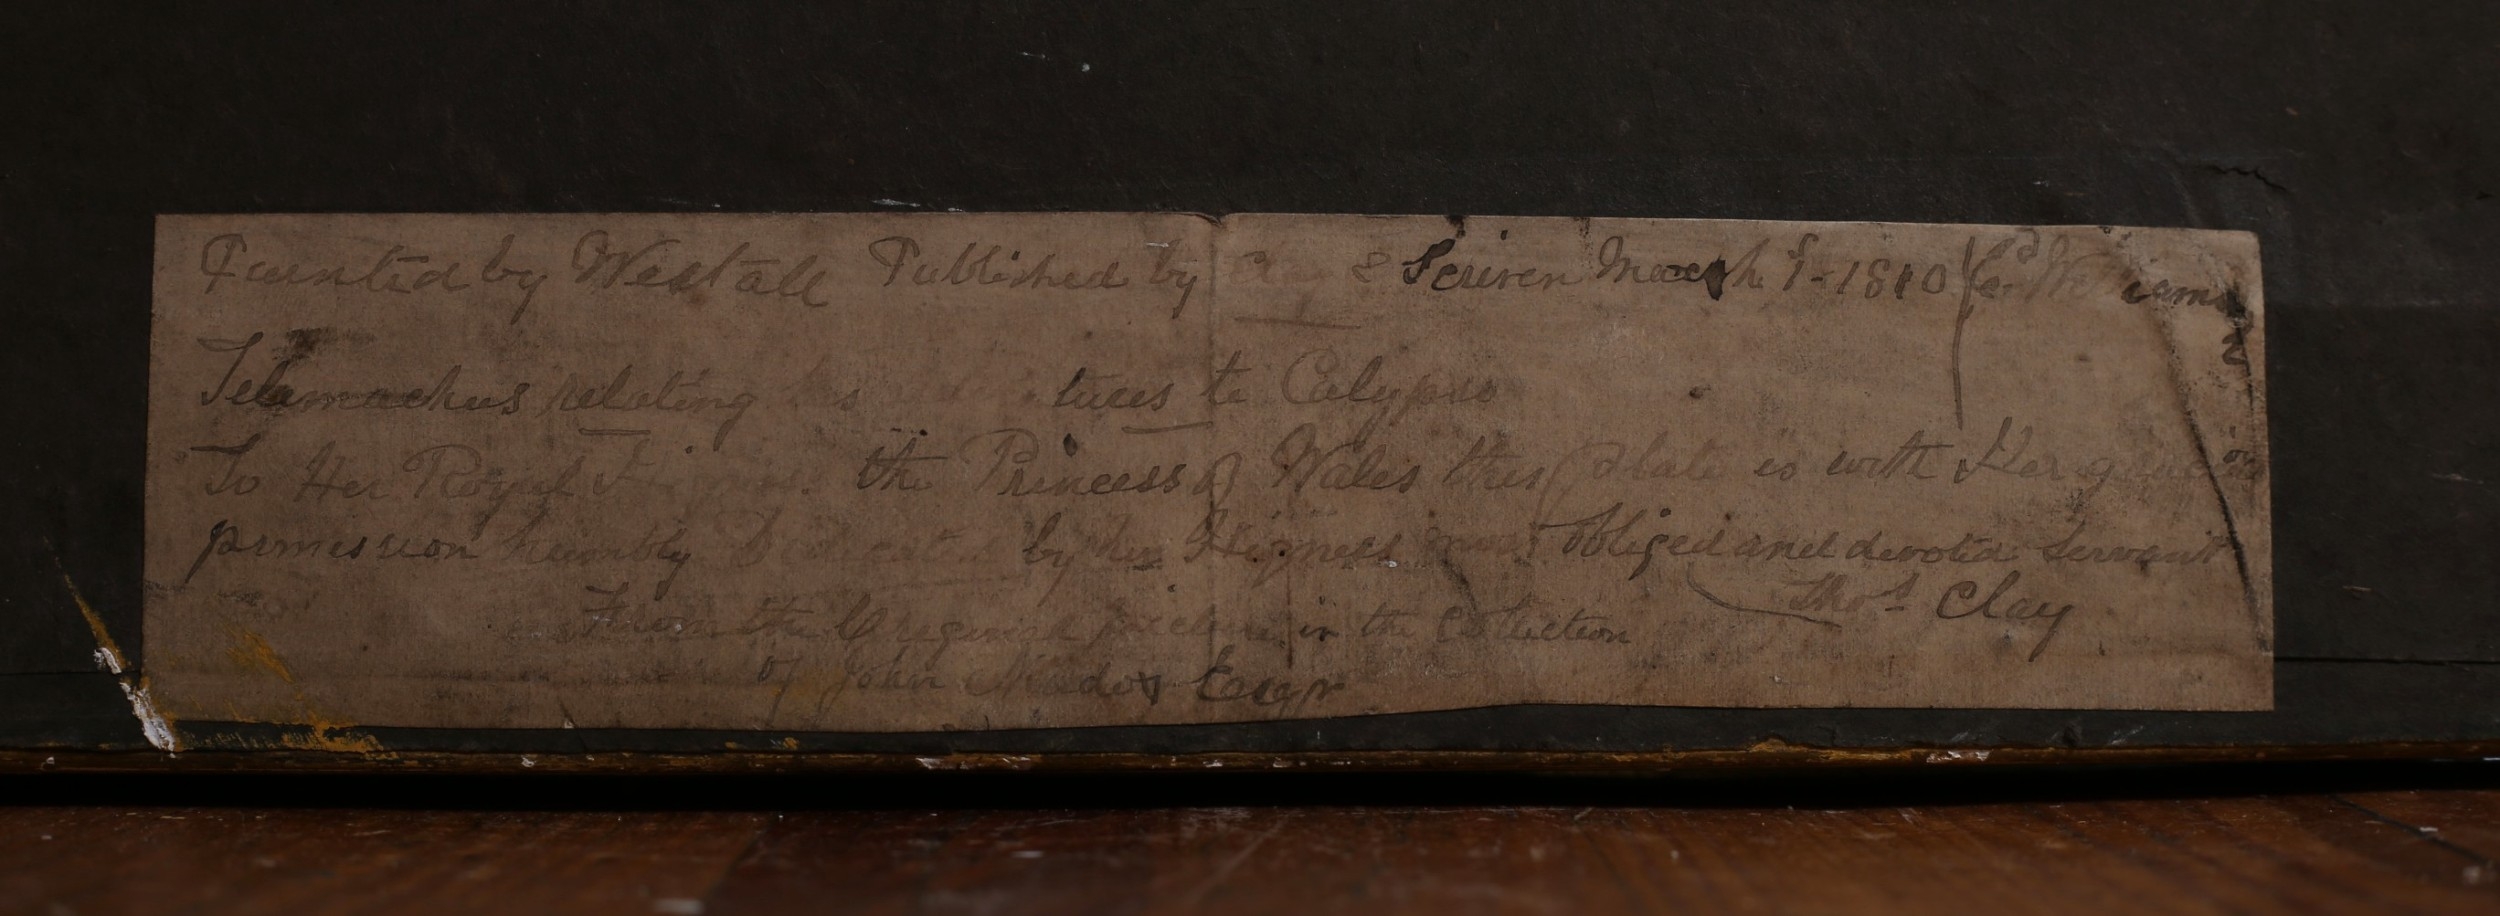 Painted by Westall Published by Clay & Scriven March 1st 1810 Ed. Williams
Telemachus relating his adventures to Calypso
To Her Royal Highness the Princess of Wales this plate is with Her gracious
permission humbly Dedicated by her Highness most obliged and devoted Servant
Thos. Clay
From the Original picture in the Collection
of John Esqr